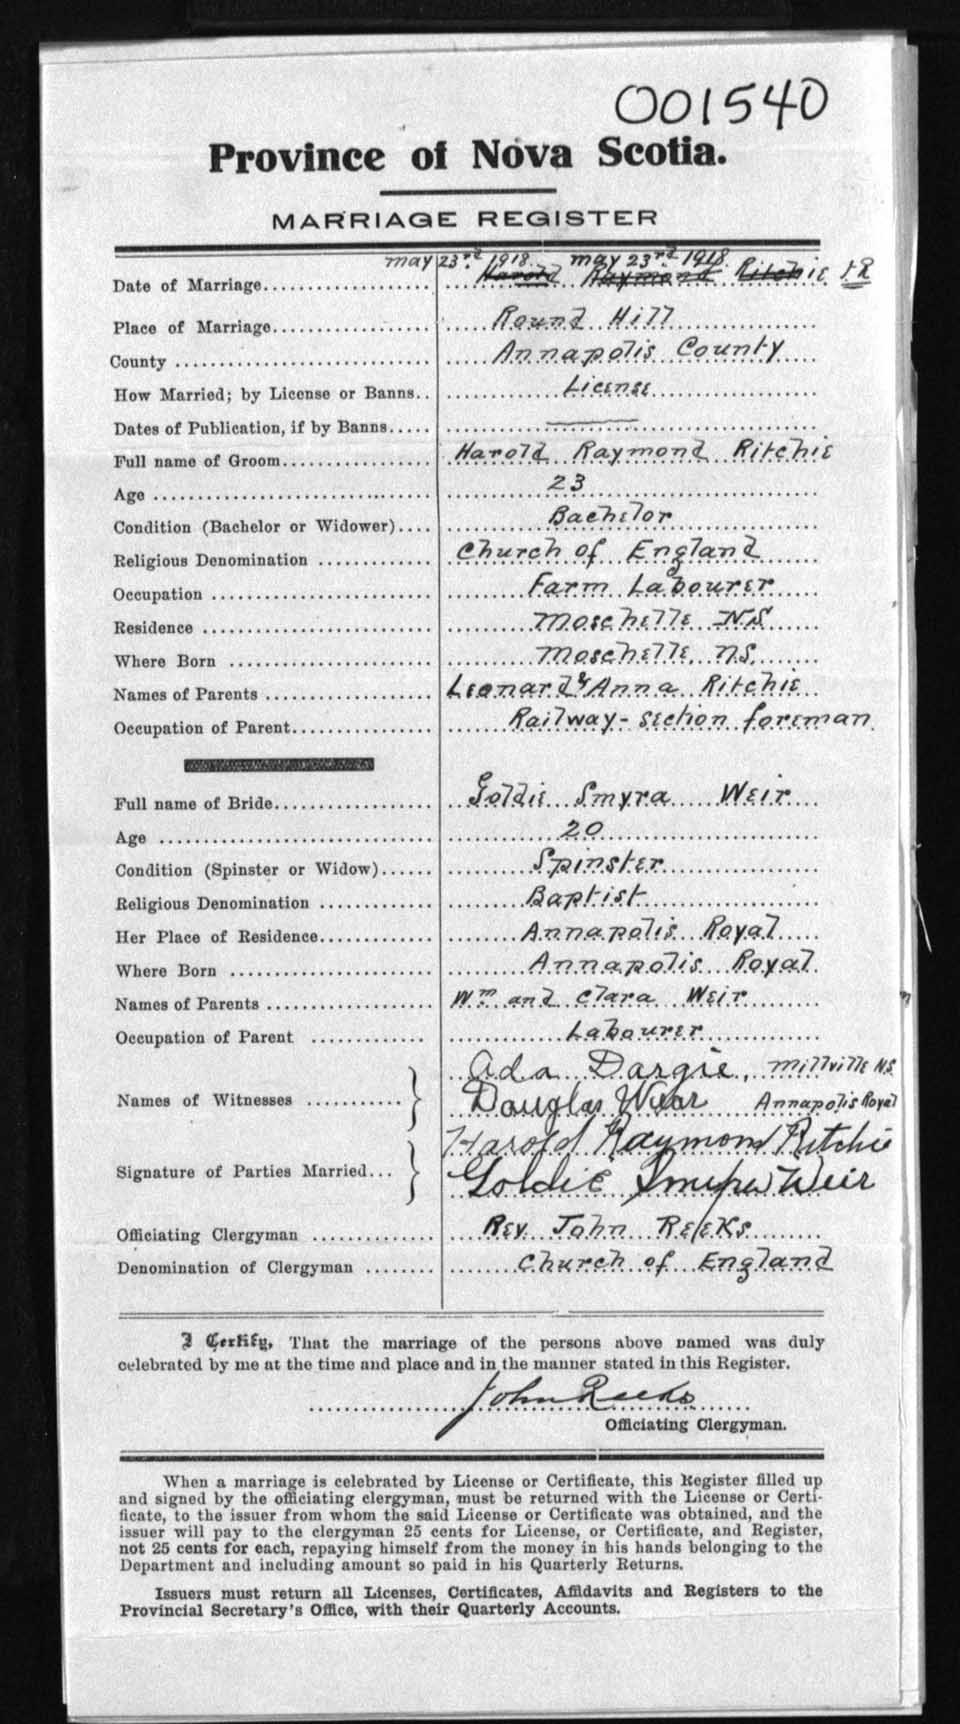 001540
Province of Nova Scotia.
MARRIAGE REGISTER
may 23rd. 1918. may 23rd 1918.
Date of Marriage Harold Raymond Ritchie J.R
Place of Marriage Round Hill
County Annapolis County
How Married; by License or Banns License
Dates of Publication, if by Banns
Full name of Groom Harold Raymond Ritchie
Age 23
Condition (Bachelor or Widower) Bachelor
Religious Denomination Church of England
Occupation Farm Labourer
Residence Moschelle N.S
Where Born Moschelle. N.S.
Names of Parents Leonard & Anna Ritchie
Occupation of Parent Railway-section foreman
Full name of Bride Goldie Smyra Weir
Age 20
Condition (Spinster or Widow) Spinster
Religious Denomination Baptist
Her Place of Residence Annapolis Royal
Where Born Annapolis Royal
Names of Parents Wm and Clara Weir
Occupation of Parent Labourer
Ada Dargie, Millville N.S.
Names of Witnesses Douglas Annapolis Royal
Harold Raymond Ritchie
Signature of Parties Married Goldie Weir
Officiating Clergyman Rev. John Reeks
Denomination of Clergyman Church of England
I Certify, That the marriage of the persons above named was duly
celebrated by me at the time and place and in the manner stated in this Register.
John Reeks
Officiating Clergyman.
When a marriage is celebrated by License or Certificate, this Register filled up
and signed by the officiating clergyman, must be returned with the License or Certi-
ficate, to the issuer from whom the said License or Certificate was obtained, and the
issuer will pay to the clergyman 25 cents for License, or Certificate, and Register,
not 25 cents for each, repaying himself from the money in his hands belonging to the
Department and including amount so paid in his Quarterly Returns.
Issuers must return all Licenses, Certificates, Affidavits and Registers to the
Provincial Secretary's Office, with their Quarterly Accounts.